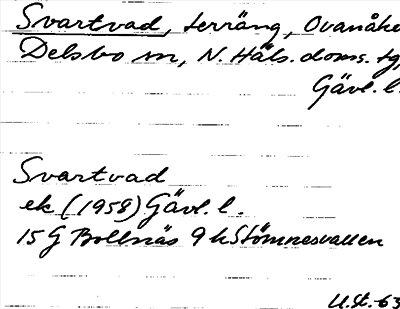 Svartvad, terräng, Ovanåke
Delsbo sn, N. Häls. doms. tg,
Gävl. l.
Svartvad
ek (1958) Gävl. l.
15 G Bollnäs 9 h Stömnesvallen
U.St. 63